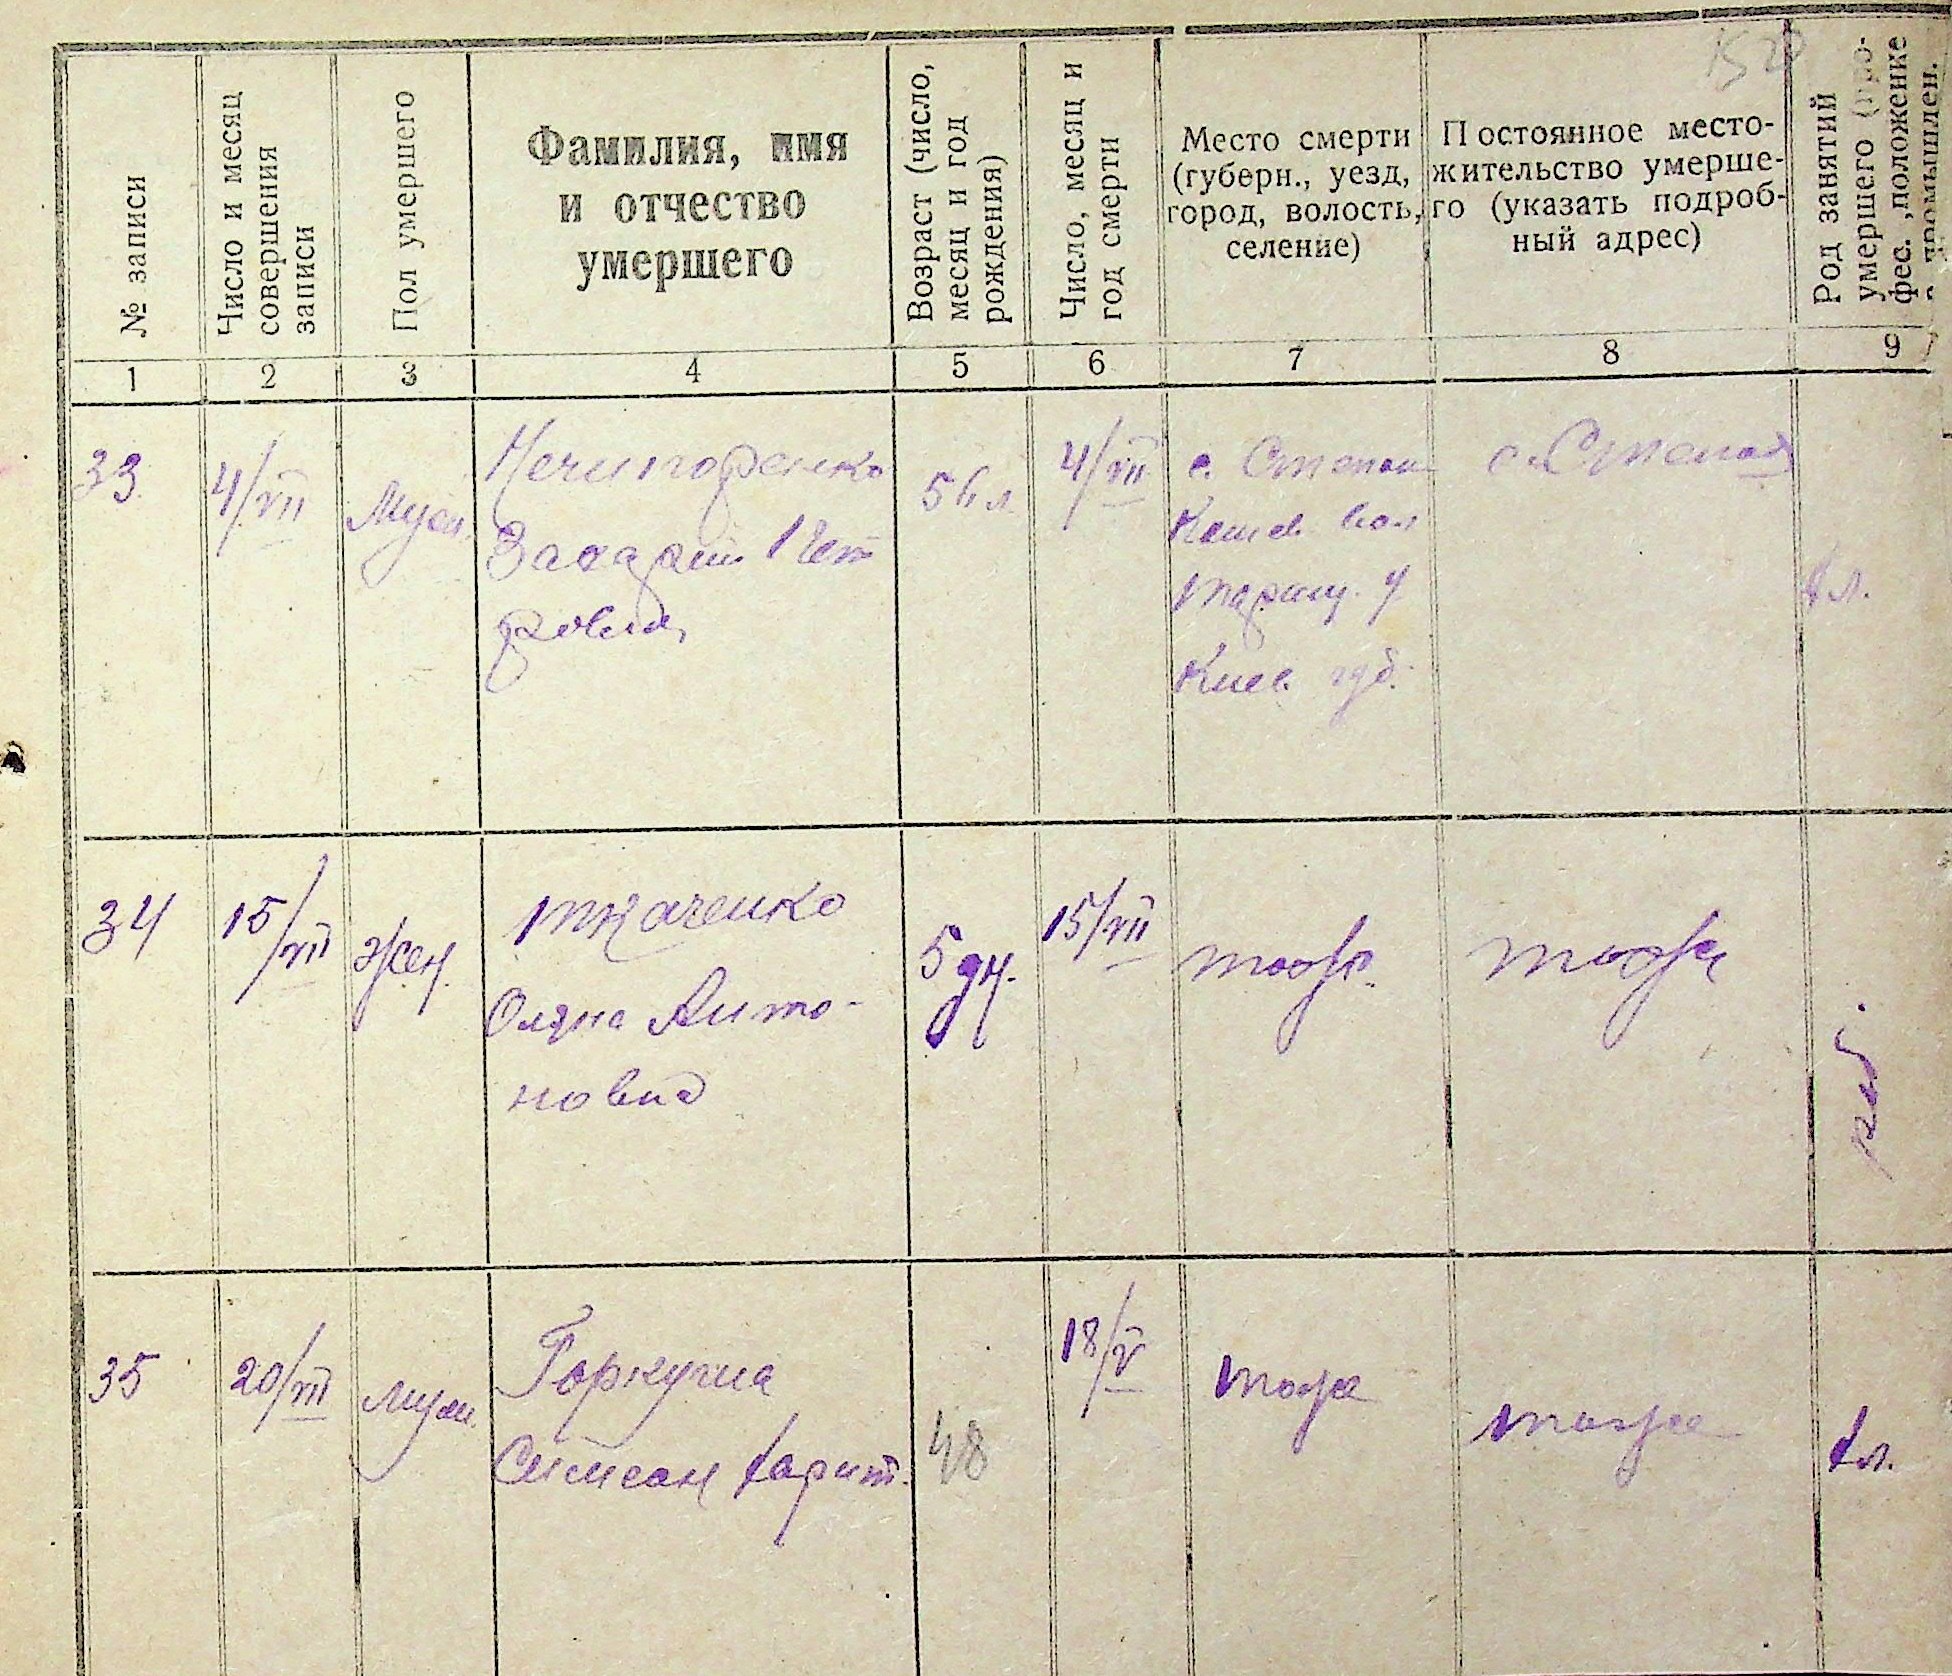 № записи
Число и месяц
совершения
записи
Пол умершего
Фамилия, имя
и отчество
умершего
Возраст (число,
месяц и год
рождения)
Число, месяц и
год смерти
Место смерти
(губерн., уезд,
город, волость,
селение)
Постоянное место-
жительство умерше-
го (указать подроб-
ный адрес)
Род занятий
умершего (про-
фес. ,положенке
в промышлен.
1 2 3 4 5 6 7 8 9
33
4/VII
Муж.
Нечипоренко
Захарий Пет
рович
4/VII
с. Степок
Кошев. вол
Таращ. у
Киев. губ.
с. Степок
34
15/VII
Жен.
Ткаченко
Оляна Анто-
новна
5 дн.
15/VII
тоже
тоже
35
20/VII
Муж.
Горкуша
Симеон Харит.
48
18/V
тоже
тоже